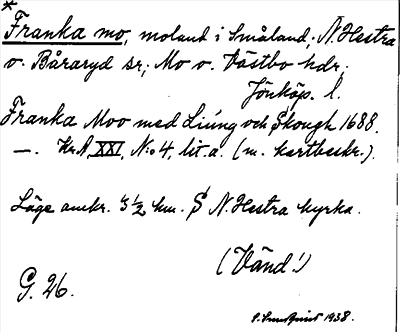 *
Franka mo, moland i Småland, N. Hestra
o. Båraryd sr; Mo o. Västbo hdr;
Jönköp. l.
Franka Moo med Liúng och Skough 1688.
—. Kr.A. XXI, No 4, lit. a. (m. kartbeskr.).
Läge omkr. 3 1/2 km. S N. Hestra kyrka.
(Vänd!)
G. 26.
1938.